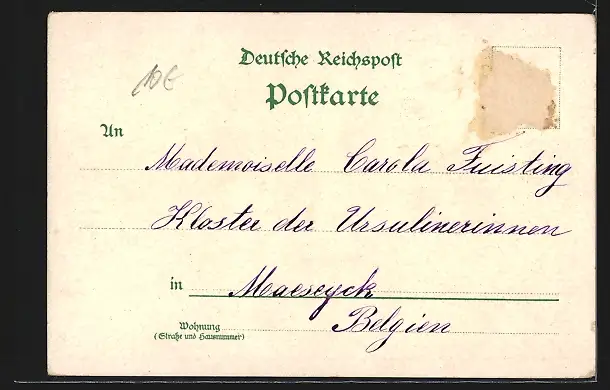 Deutsche Reichspost
Postkarte
10€
An
Mademoiselle Carola Fuisting
Kloster der Ursulinerinnen
in Maeseyck
Belgien
Wohnung
(Straße und Hausnummer)